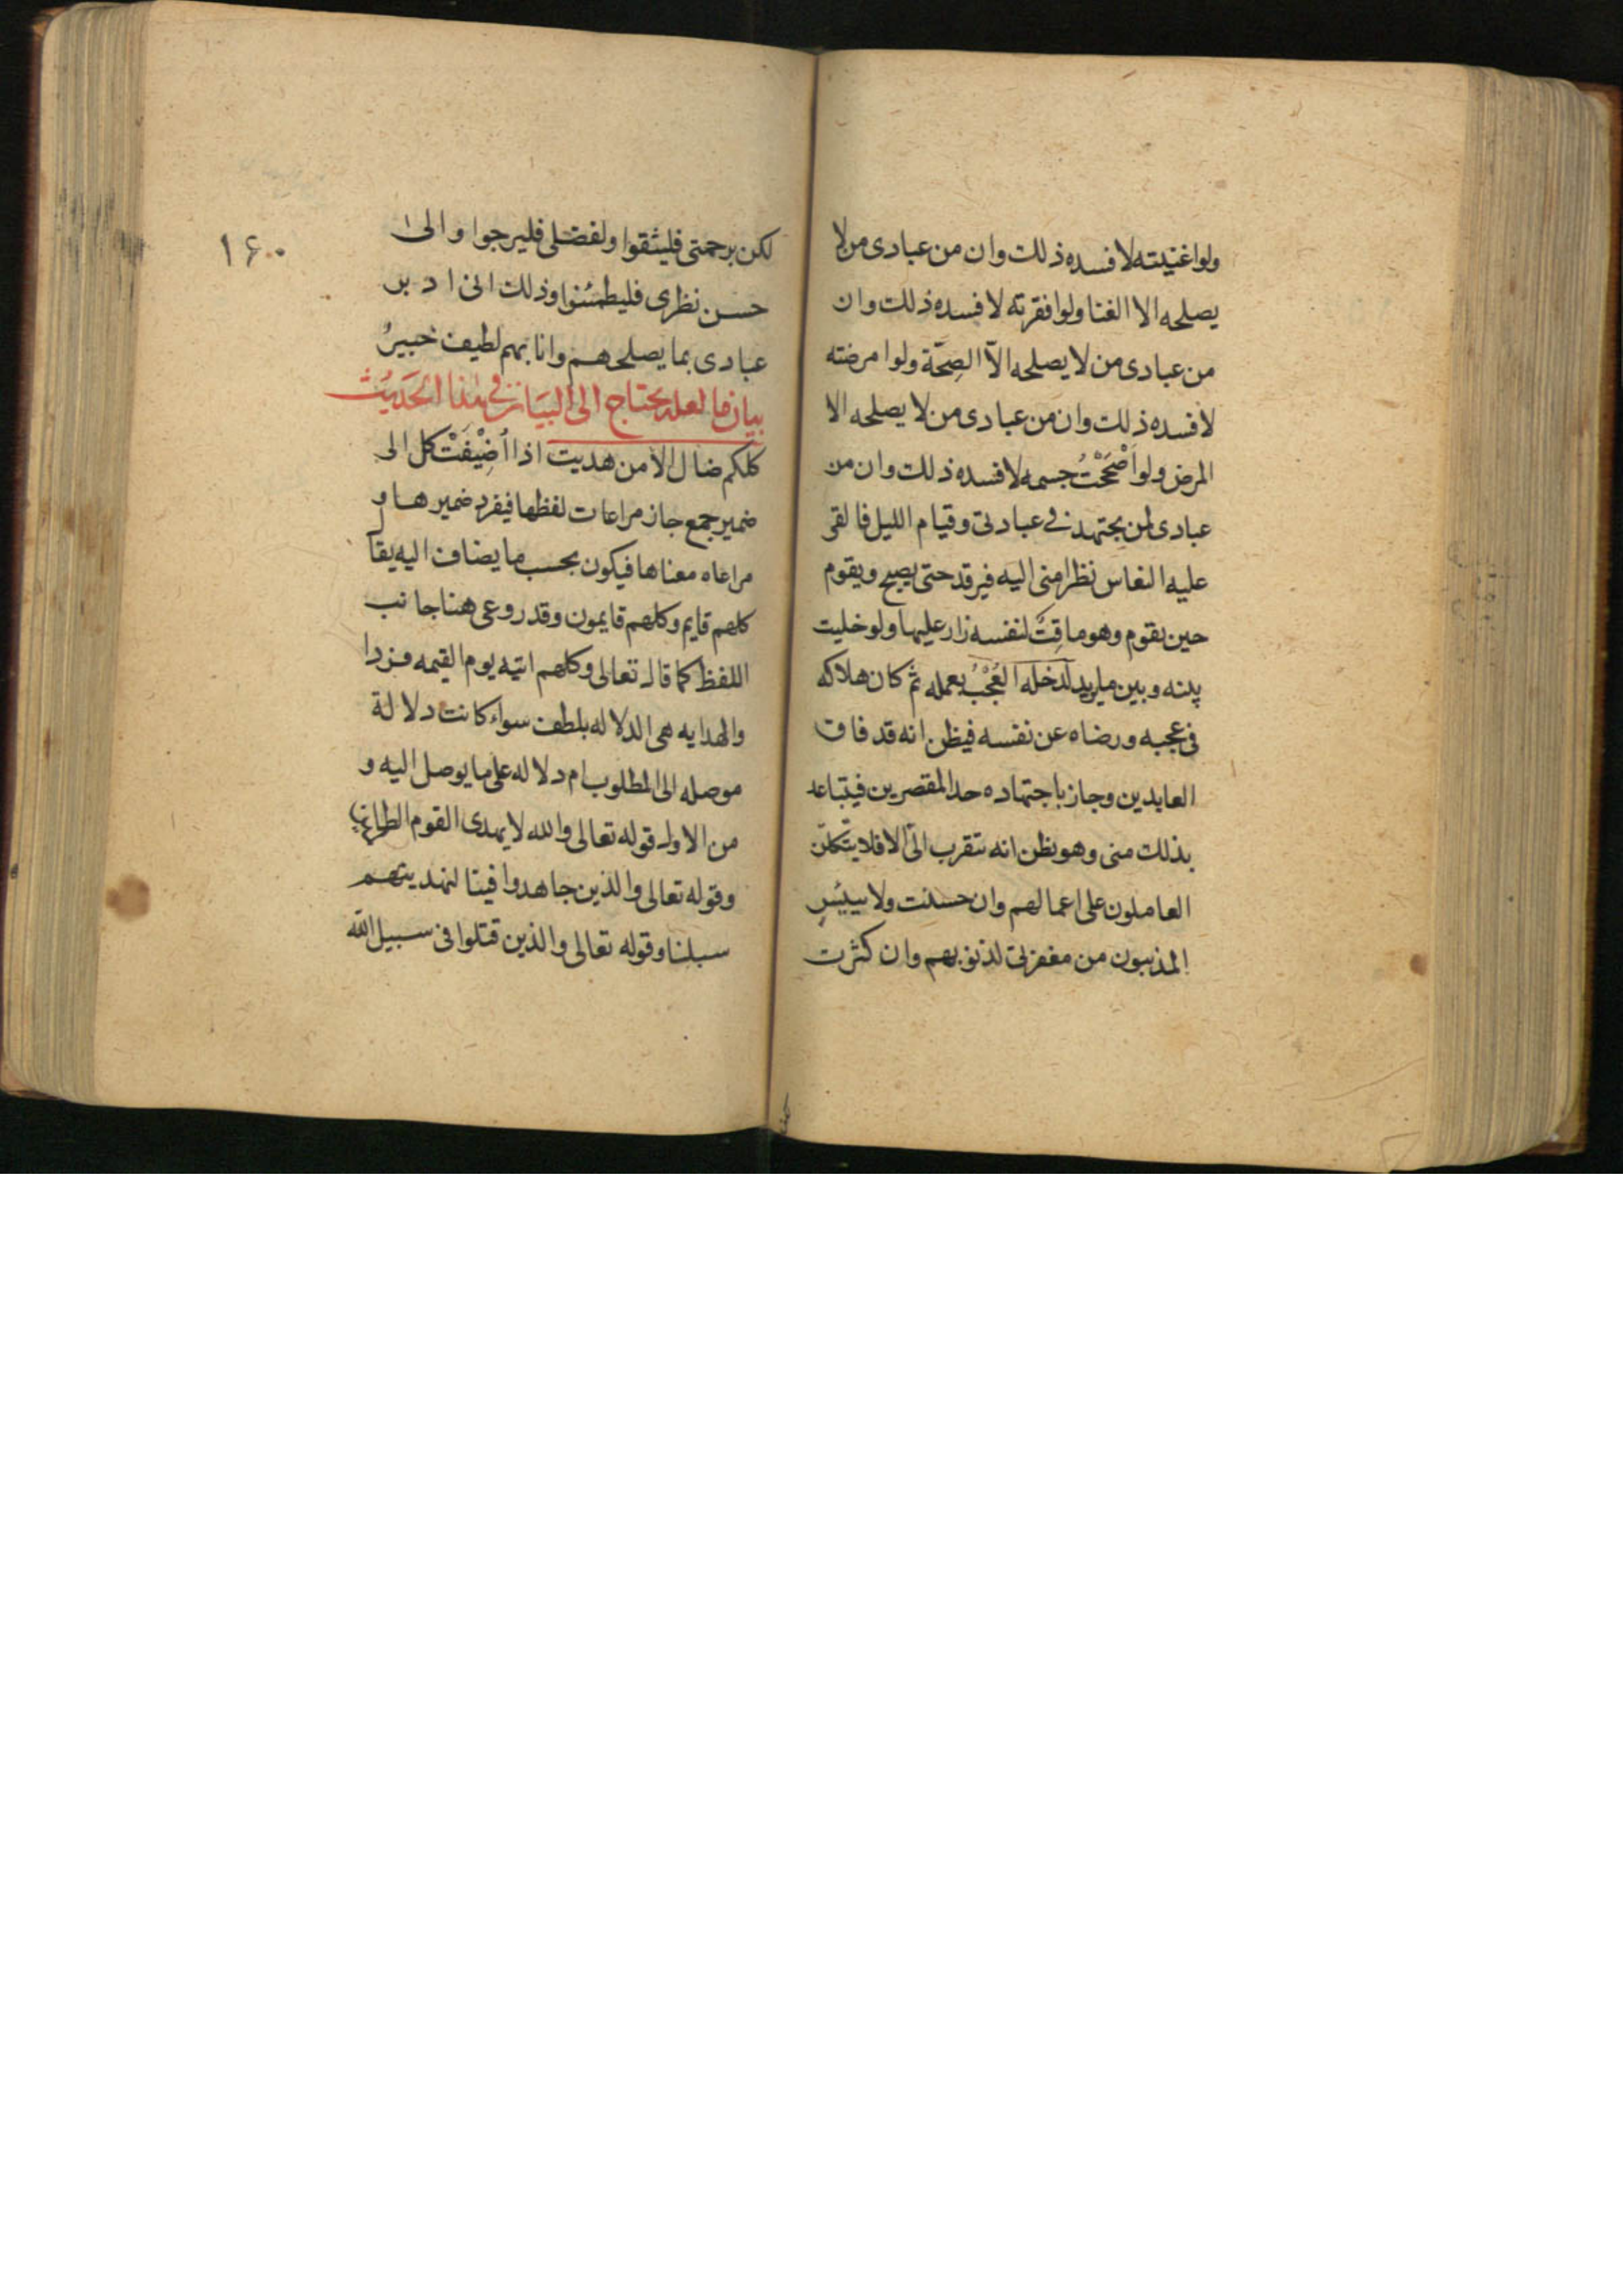 ولو اغنيته لافسده ذلك وان من عبادى من لا
يصلحه الا الغنا ولو افقرته لافسده ذلك وان
من عبادى من لا يصلحه الاّ الصِحَّة ولو امرضته
لافسده ذلك وان من عبادى من لا يصلحه الا
المرض ولو اصْحَحْتُ جسمه لافسده ذلك وان من
عبادى لمن يجتهد فى عبادتى وقيام الليل فالقى
عليه النعاس نظرا منى اليه فيرقد حتى يصبح ويقوم
حين يقوم وهو ماقِتٌ لنفسه زار عليها ولو خليت
بينه وبين ما يريد لدخله العُجْبُ بعمله ثم كان هلاكه
فى عجبه ورضاه عن نفسه فيظن انه قد فاق
العابدين وجاز باجتهاده حد المقصرين فيتباعد
بذلك منى وهو يظن انه تتقرب الىّ الا فلا يتّكلنّ
العاملون على اعمالهم وان حسنت ولا ييئسِ
المذنبون من مغفرتى لذنوبهم وان كثرت
١۶٠
لكن برحمتى فليثقوا ولفضلى فليرجوا والى
حسن نظرى فليطمئنوا وذلك انى ادبر
عبادى بما يصلحهم وانا بهم لطيف خبيرُ
بيان ما لعله يحتاج الى البيان فى هذا الحَديث
كلكم ضال الا من هديت اذا اُضِيْفَتْ كل الى
ضمير جمع جاز مراعات لفظها فيفرد ضميرها و
مراعاه معناها فيكون بحسب ما يضاف اليه يقال
كلهم قايم وكلهم قايمون وقد روعى هنا جانب
اللفظ كما قال تعالى وكلهم اتيه يوم القيمه فردا
والهدايه هى الدلاله بلطف سواء كانت دلالة
موصله الى المطلوب ام دلاله على ما يوصل اليه و
من الاول قوله تعالى والله لا يهدى القوم
وقوله تعالى والذين جاهدوا فينا لنهدينهم
سبلنا وقوله تعالى والذين قتلوا فى سبيل الله